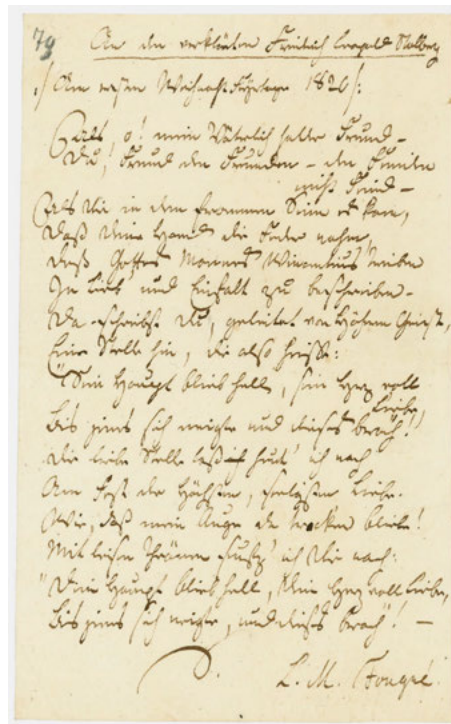 79
An den verklärten Friedrich Leopold Stolberg
/: Am ersten Weihnachtsfeyertage 1826 :/
Als, o! mein Väterlich holder Freund –
Du, Freund den Freunden – den Feinden
nicht Feind –
Als dir in den frommen Sinn es kam,
Daß deine Hand die Feder nahm,
Des Gottes Mannes Vincentius
In Lieb' und Einfalt zu beschreiben –
Da schriebst du, geleitet von höherm Geist,
Eine Stelle hin, die also heißt:
"Sein Haupt blieb hell, sein Herz voll
Liebe,
Bis jenes sich neigte und dieses brach!"
Die liebe Stelle las heut' ich nach
Am Fest der höchsten, seligsten Liebe.
Wie, daß mein Auge da trocken bliebe!
Mit leisen Thränen ich dir nach:
"Dein Haupt blieb hell, dein Herz voll Liebe,
Bis jenes sich neigte, und dieses brach"! –
L. M. Fouqué.